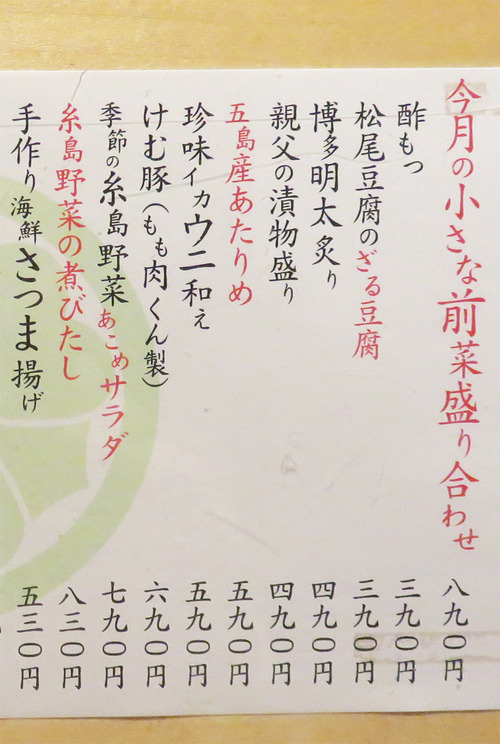 今月の小さな前菜盛り合わせ 八九〇円
酢もつ 三九〇円
松尾豆腐のざる豆腐 三九〇円
博多明太炙り 四九〇円
親父の漬物盛り 四九〇円
五島産あたりめ 五九〇円
珍味イカウニ和え 五九〇円
けむ豚(もも肉くん製) 六九〇円
季節の糸島野菜あこめサラダ 七九〇円
糸島野菜の煮びたし 八三〇円
手作り海鮮さつま揚げ 五三〇円